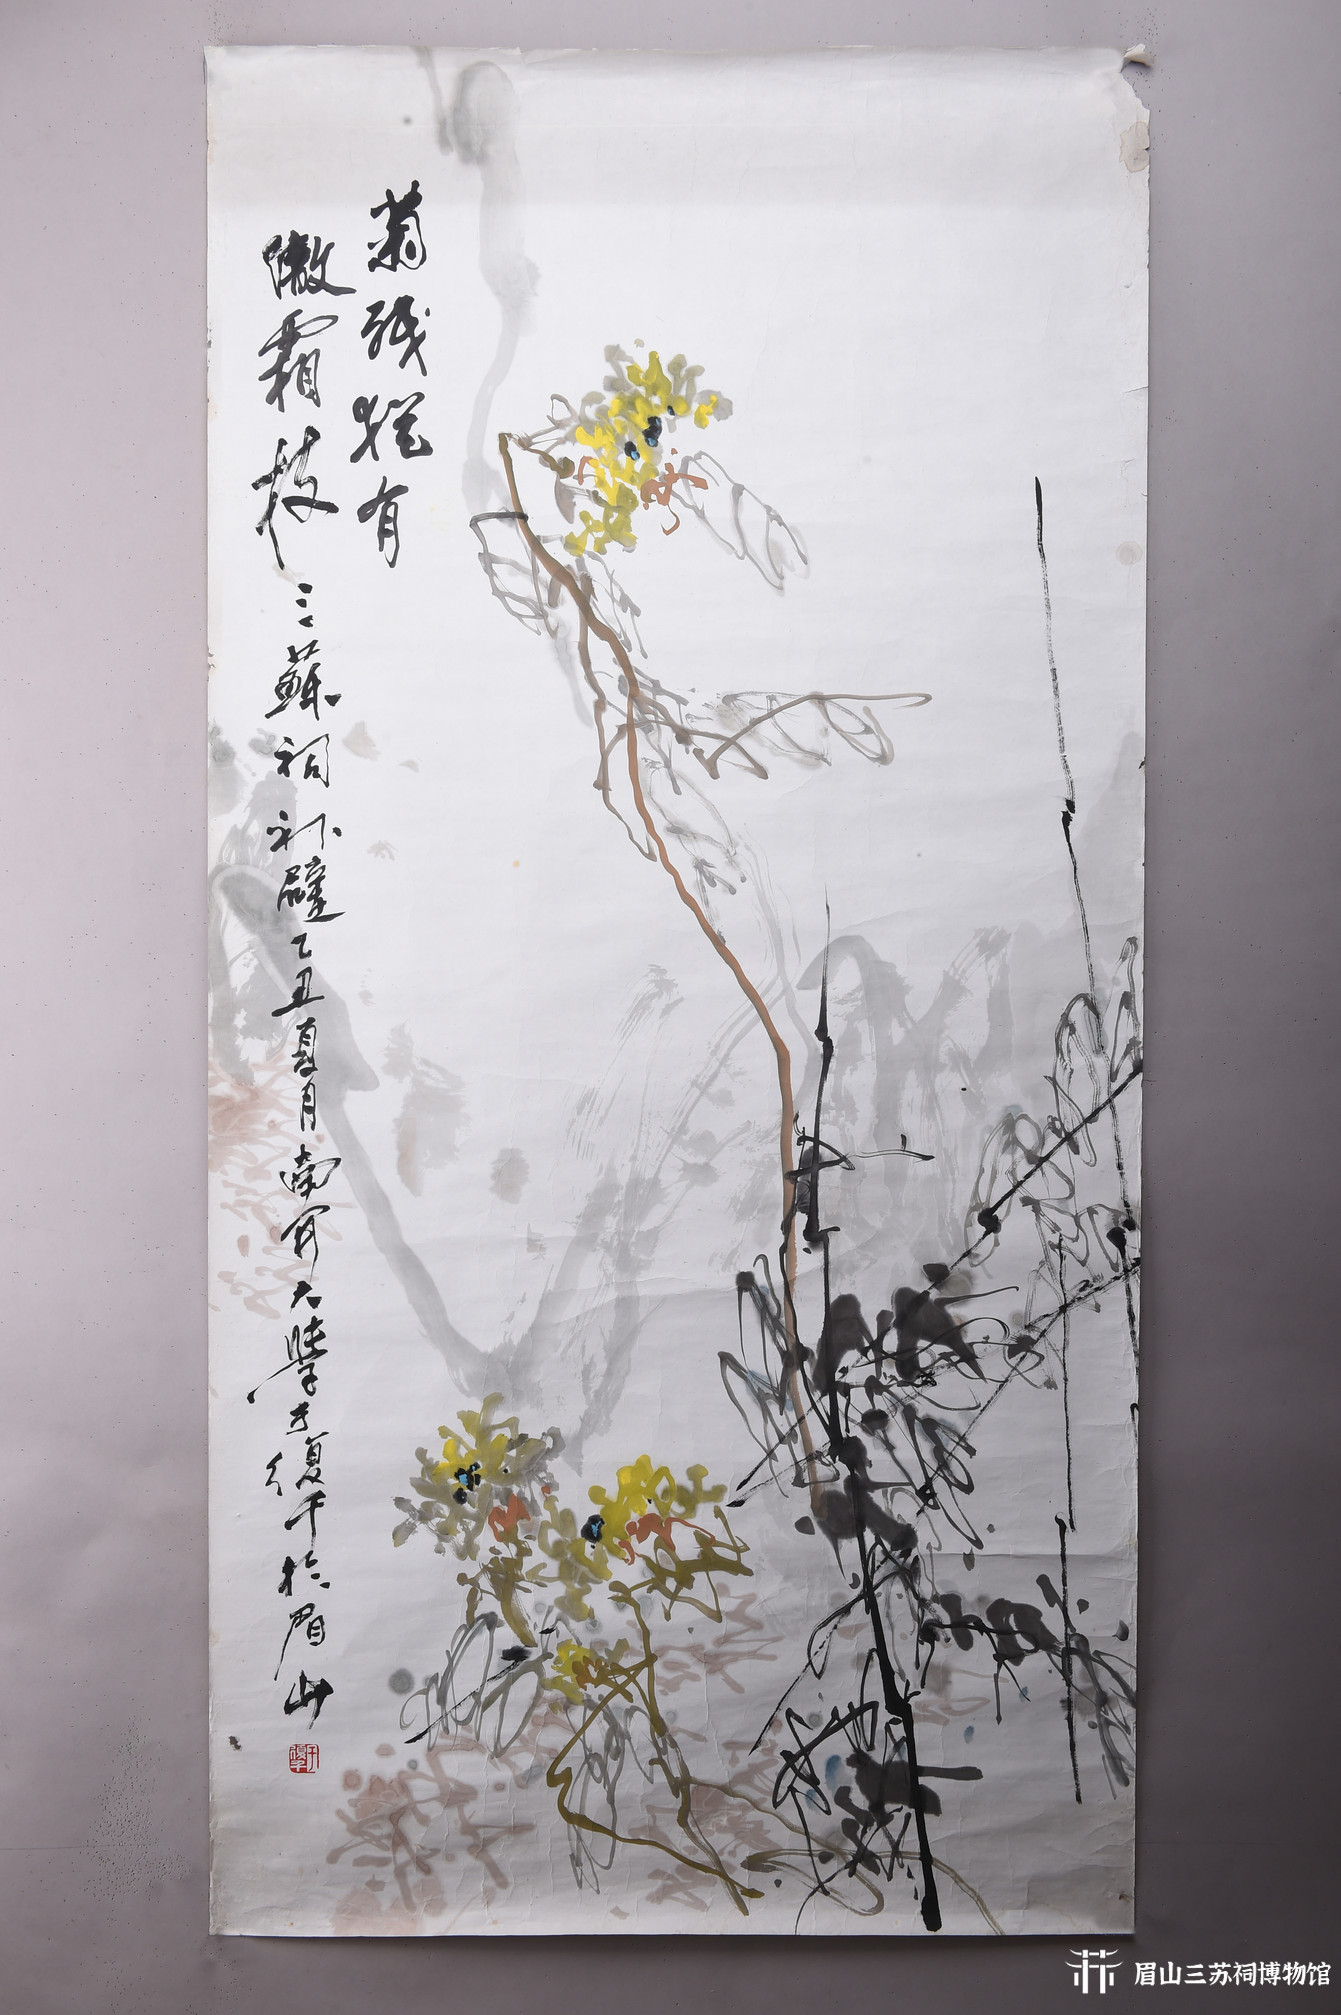 菊残犹有
傲霜枝 三蘇祠补壁 乙丑夏月南开大學于復千於眉山
于復千
眉山三苏祠博物馆